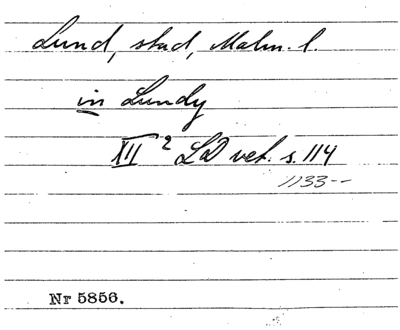 Lund, stad, Malm. l.
in Lundy
XII 2 LD vet. s. 114
1133--
Nr 5856.